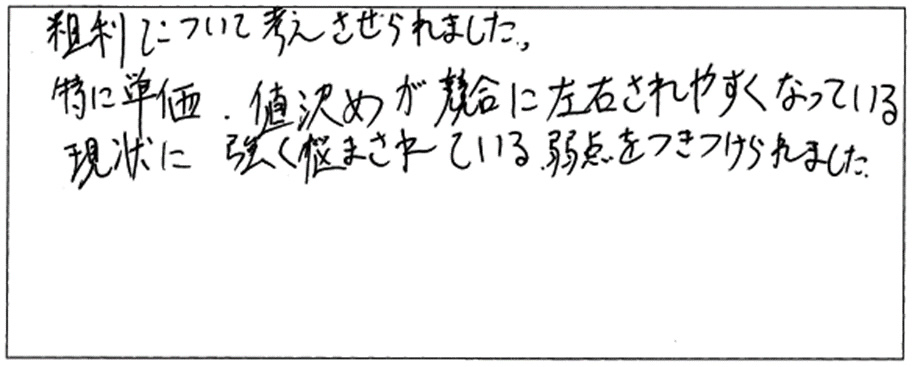 粗利について考えさせられました。
特に単価、値決めが競合に左右されやすくなっている
現状に強く悩まされている弱点をつきつけられました。